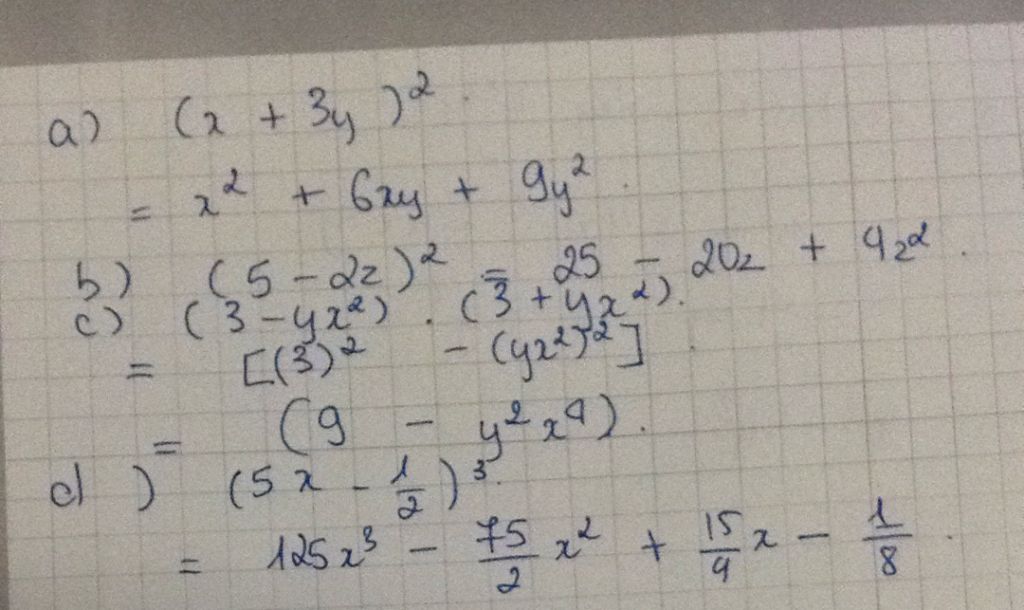 a) (x + 3y)².
= x² + 6xy + 9y².
b) (5 - 2z)² = 25 - 20z + 4z².
c) (3 - yx²) . (3 + yx²).
= [(3)² - (yx²)²].
= (9 - y²x⁴).
d) (5x - 1/2)³.
= 125x³ - 75/2 x² + 15/4 x - 1/8.